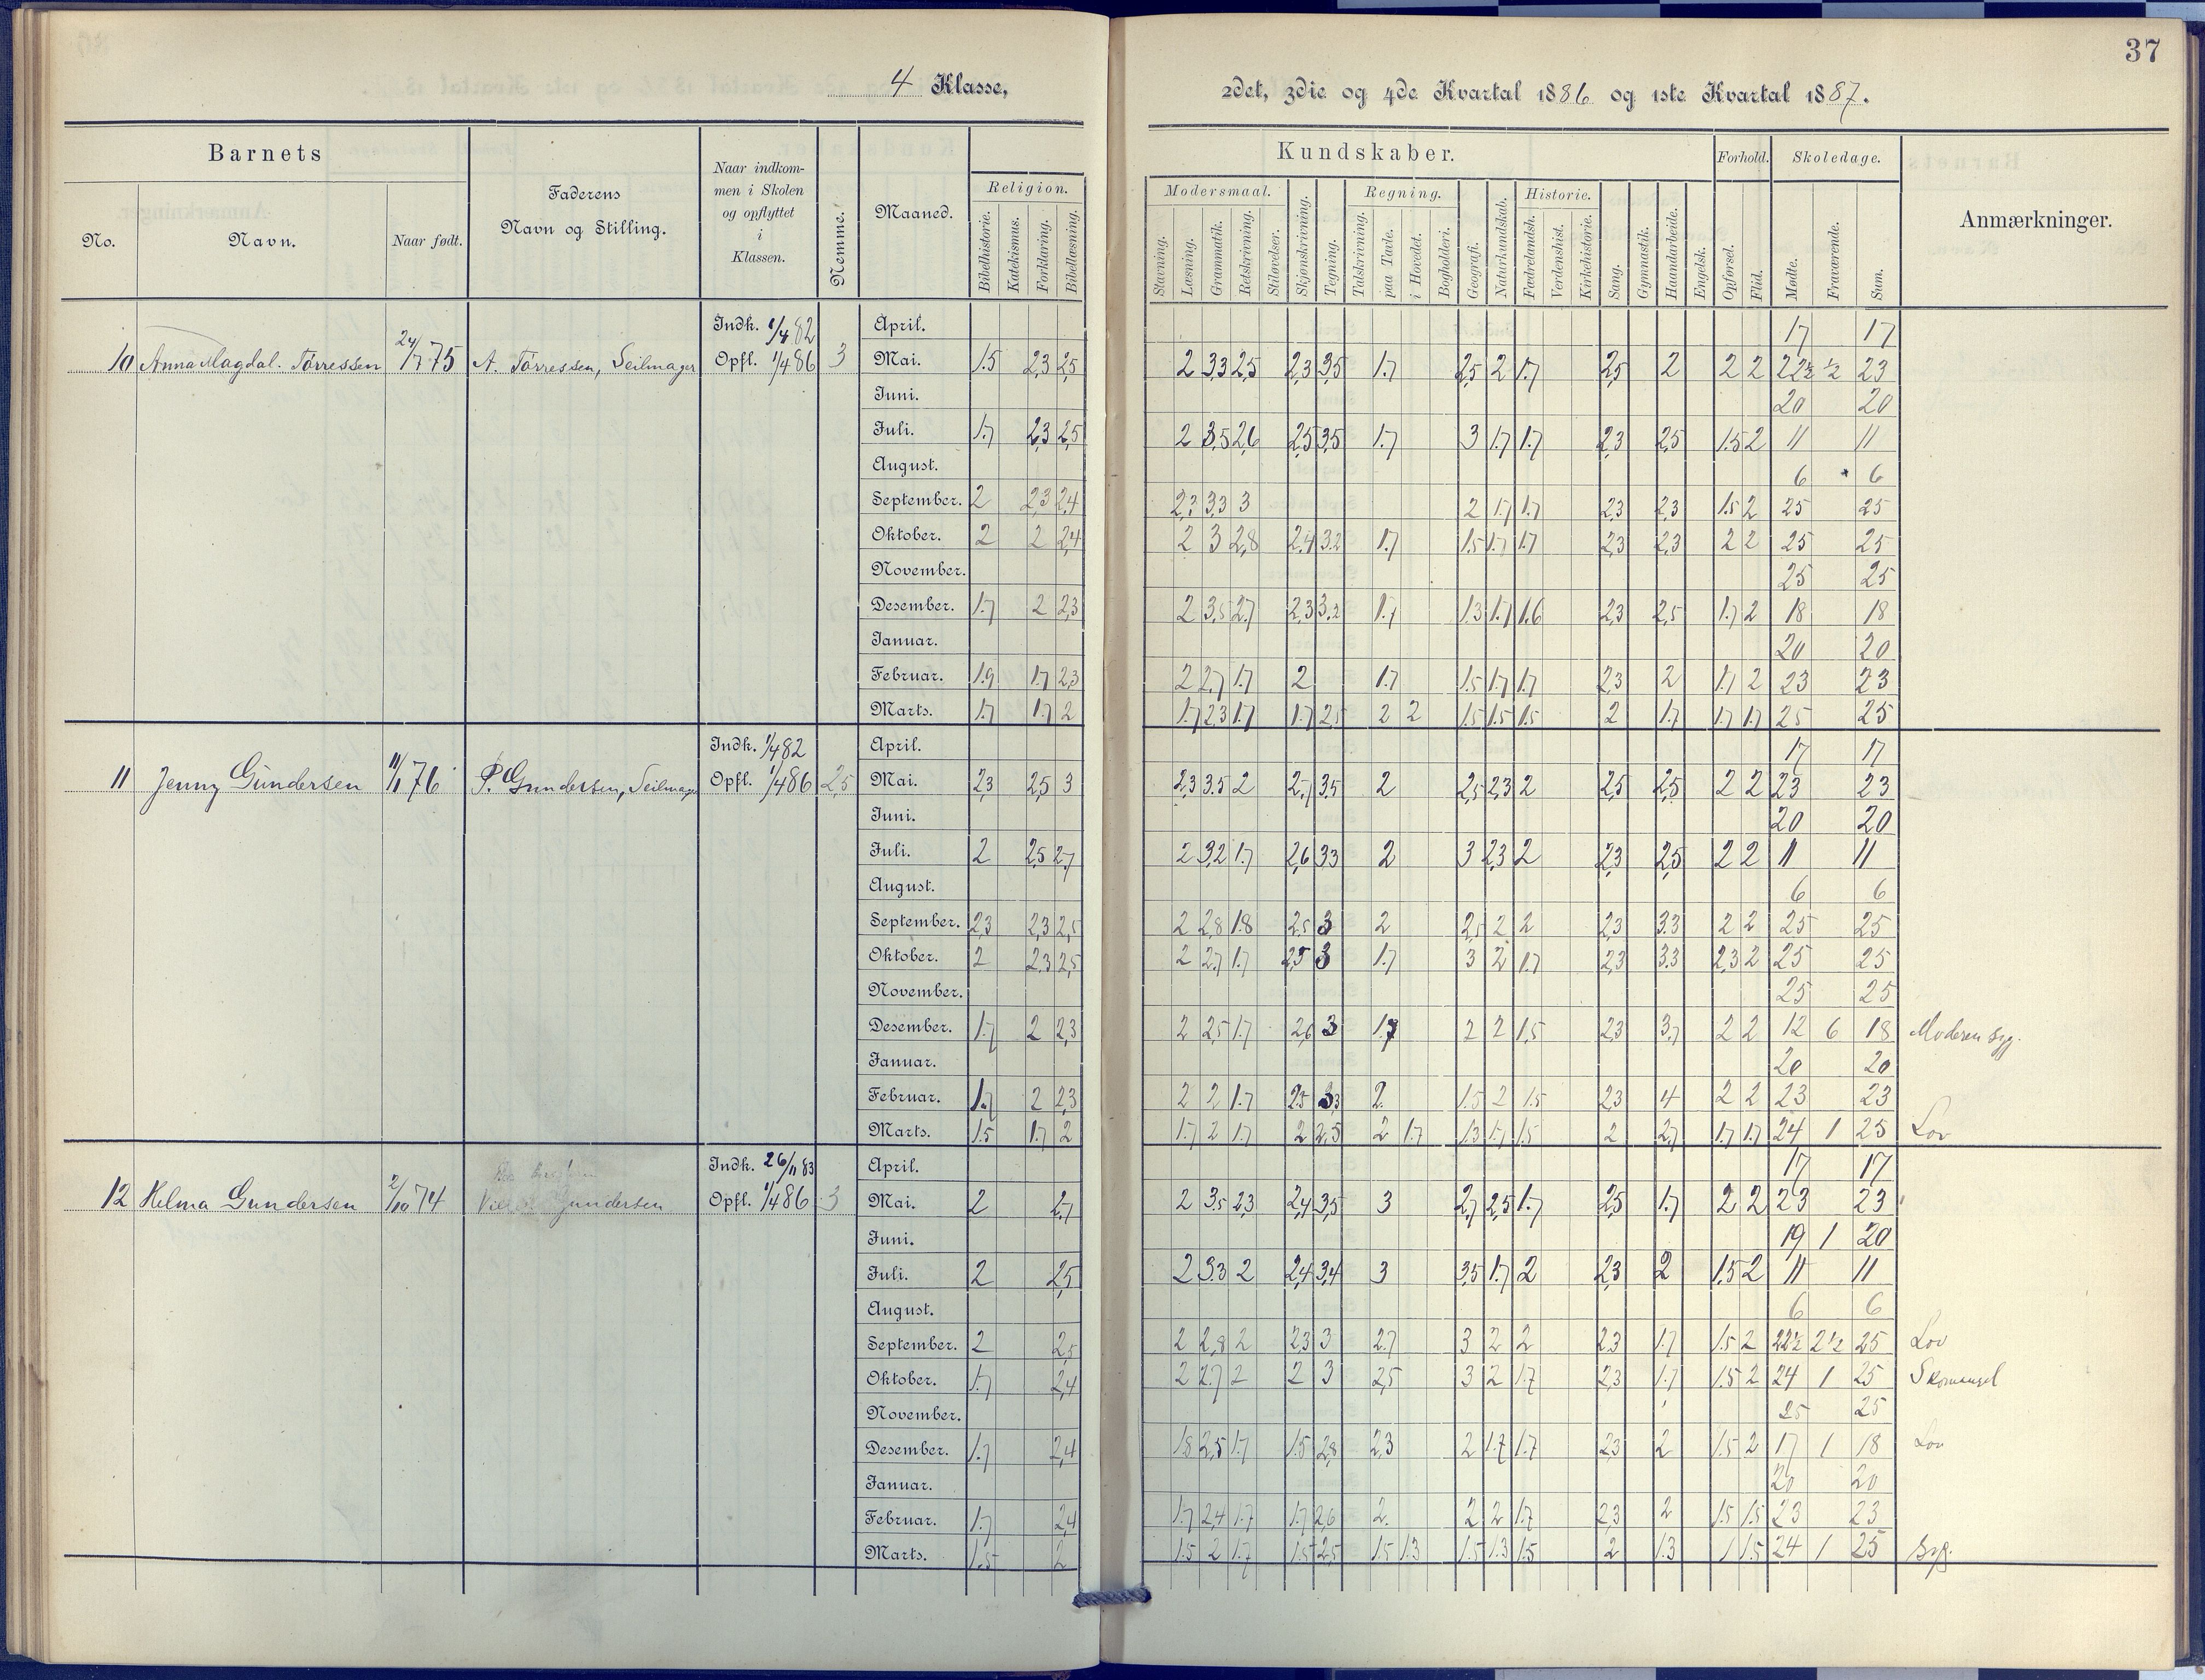 37
4 Klasse,
2det, 3die og 4de Kvartal 1886 og 1ste Kvartal 1887.
Barnets
No.
Navn.
Naar født.
Faderens
Navn og Stilling.
Naar indkom-
men i Skolen
og opflyttet
i
Klassen.
Nemme.
Maaned.
Religion.
Bibelhistorie.
Katekismus.
Forklaring.
Bibellæsning.
Kundskaber.
Modersmaal.
Stavning.
Læsning.
Grammatik.
Retskrivning.
Stiløvelser.
Skjønskrivning.
Tegning.
Regning.
Talskrivning.
paa Tavle.
i Hovedet.
Bogholderi.
Geografi.
Naturkundskab.
Historie.
Fædrelandsh.
Verdenshist.
Kirkehistorie.
Sang.
Gymnastik.
Haandarbeide.
Engelsk.
Forhold.
Opførsel.
Flid.
Skoledage.
Mødte.
Fraværende.
Sum.
Anmærkninger.
10 Anna Magdal. Tørressen 24/7 75 A. Tørressen, Seilmager Indk. 1/4 82 Opfl. 1/4 86 3
April. 17 17
Mai. 1.5 2,3 2,5 2 3,3 2,5 2,3 3,5 1.7 2,5 2 1.7 2,5 2 2 2 22½ ½ 23
Juni. 20 20
Juli. 1.7 2,3 2,5 2 3,5 2,6 2,5 3,5 1.7 3 1.7 1.7 2,3 2,5 1.5 2 11 11
August. 6 6
September. 2 2,3 2,4 2,3 3,3 3 2 1.7 1.7 2,3 2,3 1.5 2 25 25
Oktober. 2 2 2,4 2 3 2,8 2,4 3.2 1.7 1.5 1.7 1.7 2,3 2,3 2 2 25 25
November. 25 25
Desember. 1.7 2 2,3 2 3,5 2,7 2,3 3,2 1.7 1.3 1.7 1.6 2,3 2,5 1.7 2 18 18
Januar. 20 20
Februar. 1.9 1.7 2,3 2 2,7 1.7 2 1.7 1.5 1.7 1.7 2,3 2 1.7 2 23 23
Marts. 1.7 1.7 2 1.7 2,3 1.7 1.7 2,5 2 2 1.5 1.5 1.5 2 1.7 1.7 1.7 25 25
11 Jenny Gundersen 11/1 76 P. Gundersen, Seilmager Indk. 1/4 82 Opfl. 1/4 86 2,5
April. 17 17
Mai. 2,3 2,5 3 2,3 3.5 2 2,7 3,5 2 2,5 2,3 2 2,5 2,5 2 2 23 23
Juni. 20 20
Juli. 2 2,5 2,7 2 3,2 1.7 2,6 3,3 2 3 2,3 2 2,3 2,5 2 2 11 11
August. 6 6
September. 2,3 2,3 2,5 2 2,8 1.8 2,5 3 2 2,5 2 2 2,3 3.3 2 2 25 25
Oktober. 2 2,3 2,5 2 2,7 1.7 2,5 3 1.7 3 2 1.7 2,3 3.3 2,3 2 25 25
November. 25 25
Desember. 1.7 2 2,3 2 2,5 1.7 2,6 3 1.7 2 2 1,5 2,3 3,7 2 2 12 6 18 Moderen syg.
Januar. 20 20
Februar. 1.7 2 2,3 2 2 1.7 2,5 3,3 2. 1.5 2 1.5 2,3 4 2 2 23 23
Marts. 1.5 1.7 2 1.7 2 1.7 2 2,5 2 1.7 1.3 1.7 1.5 2 2,7 1.7 1.7 24 1 25 Lov
12 Helma Gundersen 2/10 74 Gundersen Indk. 26/11 83 Opfl. 1/4 86 3
April. 17 17
Mai. 2 2,7 2 3,5 2,3 2,4 3,5 3 2,7 2,5 1.7 2,5 1.7 2 2 23 23
Juni. 19 1 20
Juli. 2 2,5 2 3.3 2 2,4 3,4 3 3,5 1.7 2 2,3 2 1.5 2 11 11
August. 6 6
September. 2 2,5 2 2,8 2 2,3 3 2,7 3 2 2 2,3 1.7 1.5 2 22½ 2½ 25 Lov
Oktober. 1.7 2,4 2 2,7 2 2 3 2,5 3 2 1.7 2,3 1.7 1.5 2 24 1 25 Skomangel
November. 25 25
Desember. 1.7 2,4 1.8 2,5 1.7 1.5 2,8 2,3 2 1.7 1.7 2,3 2 1.5 2 17 1 18 Lov
Januar. 20 20
Februar. 1.7 2,4 1.7 2,4 1.7 1.7 2,6 2. 2 2 1.7 2,3 2 1.5 1.5 23 23
Marts. 1.5 2 1.5 2 1.7 1.5 2,5 1.5 1.3 1.5 1.3 1.5 2 1.3 1 1.5 24 1 25 Syg.